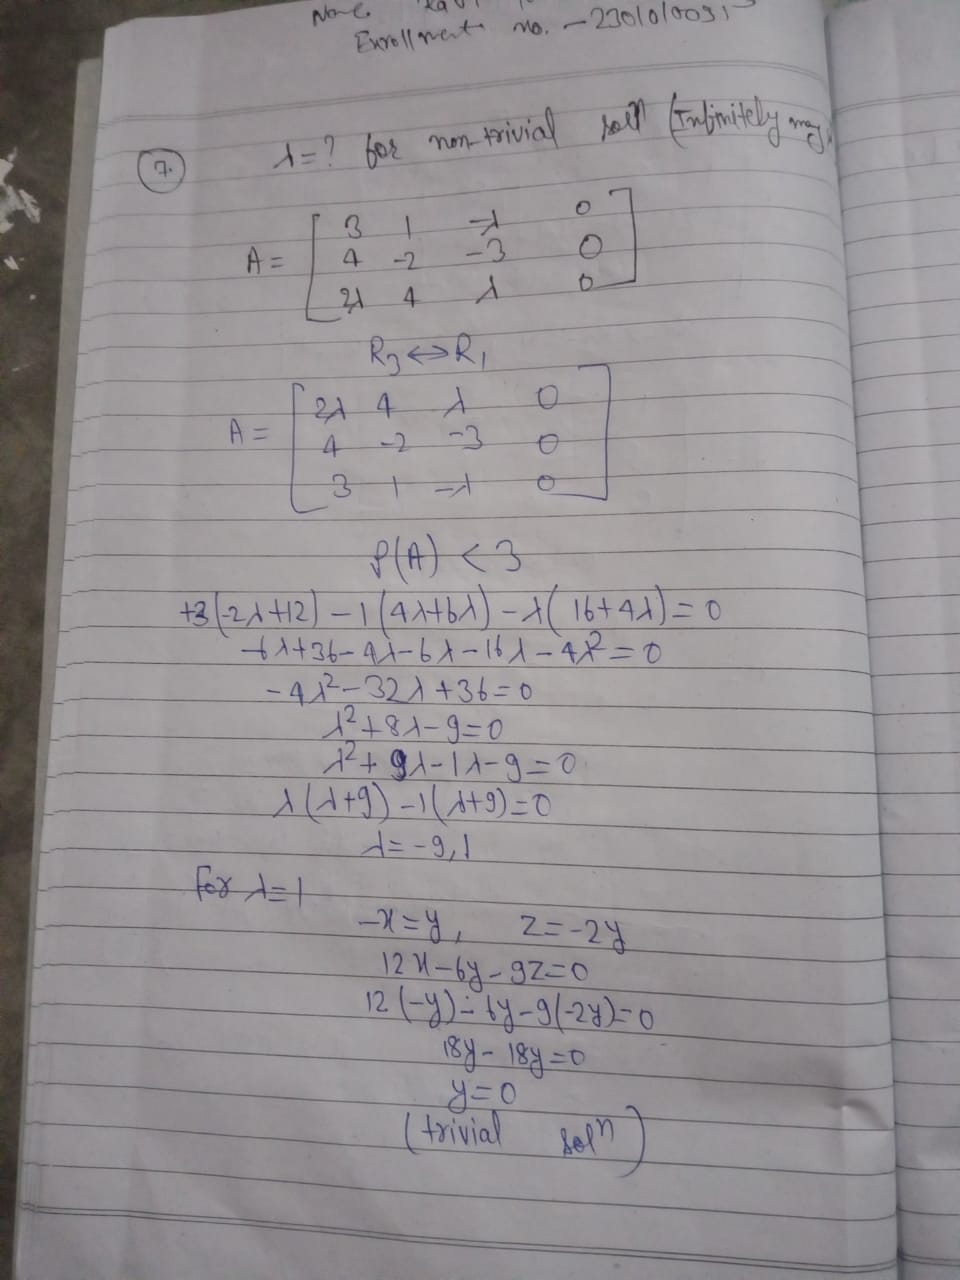 Name
Enrollment no. - 2301010031
7. λ=? for non-trivial solⁿ (Infinitely many
A = [ 3 1 -λ 0
4 -2 -3 0
2λ 4 λ 0 ]
R₃ ↔ R₁
A = [ 2λ 4 λ 0
4 -2 -3 0
3 1 -λ 0 ]
ρ(A) < 3
+3(-2λ+12) - 1(4λ+6λ) - λ(16+4λ) = 0
-6λ+36-4λ-6λ-16λ-4λ² = 0
-4λ²-32λ+36=0
λ²+8λ-9=0
λ²+9λ-1λ-9=0
λ(λ+9)-1(λ+9)=0
λ=-9,1
for λ=1
-x=y, z=-2y
12x-6y-9z=0
12(-y)-6y-9(-2y)=0
18y-18y=0
y=0
(trivial solⁿ)